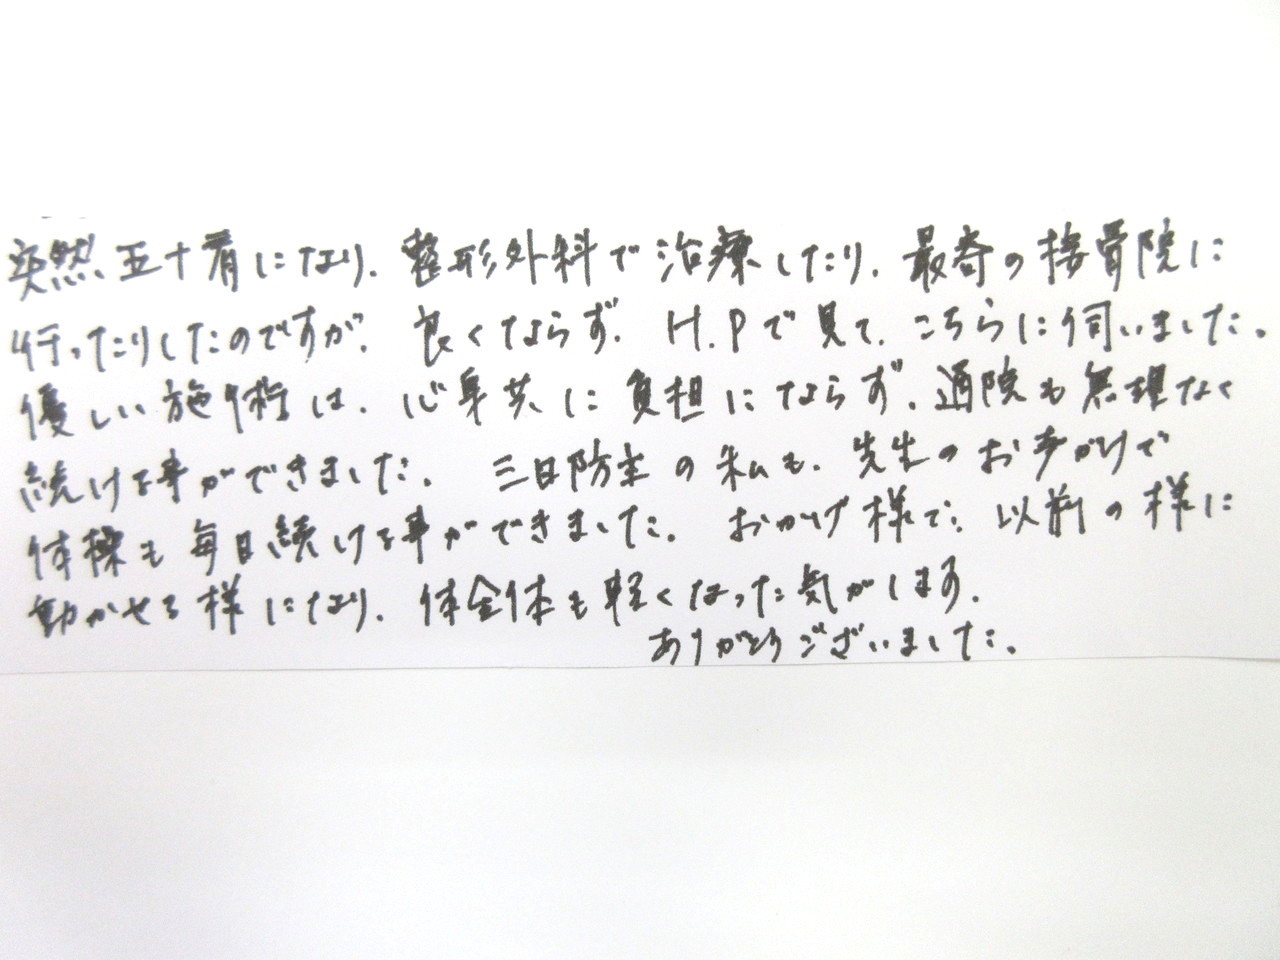 突然、五十肩になり、整形外科で治療したり、最寄の接骨院に
行ったりしたのですが、良くならず、H.Pで見て、こちらに伺いました。
優しい施術は、心身共に負担にならず、通院も無理なく
続ける事ができました。三日防主の私も、先生のお声がけで
体操も毎日続ける事ができました。おかげ様で、以前の様に
動かせる様になり、体全体も軽くなった気がします。
ありがとうございました。